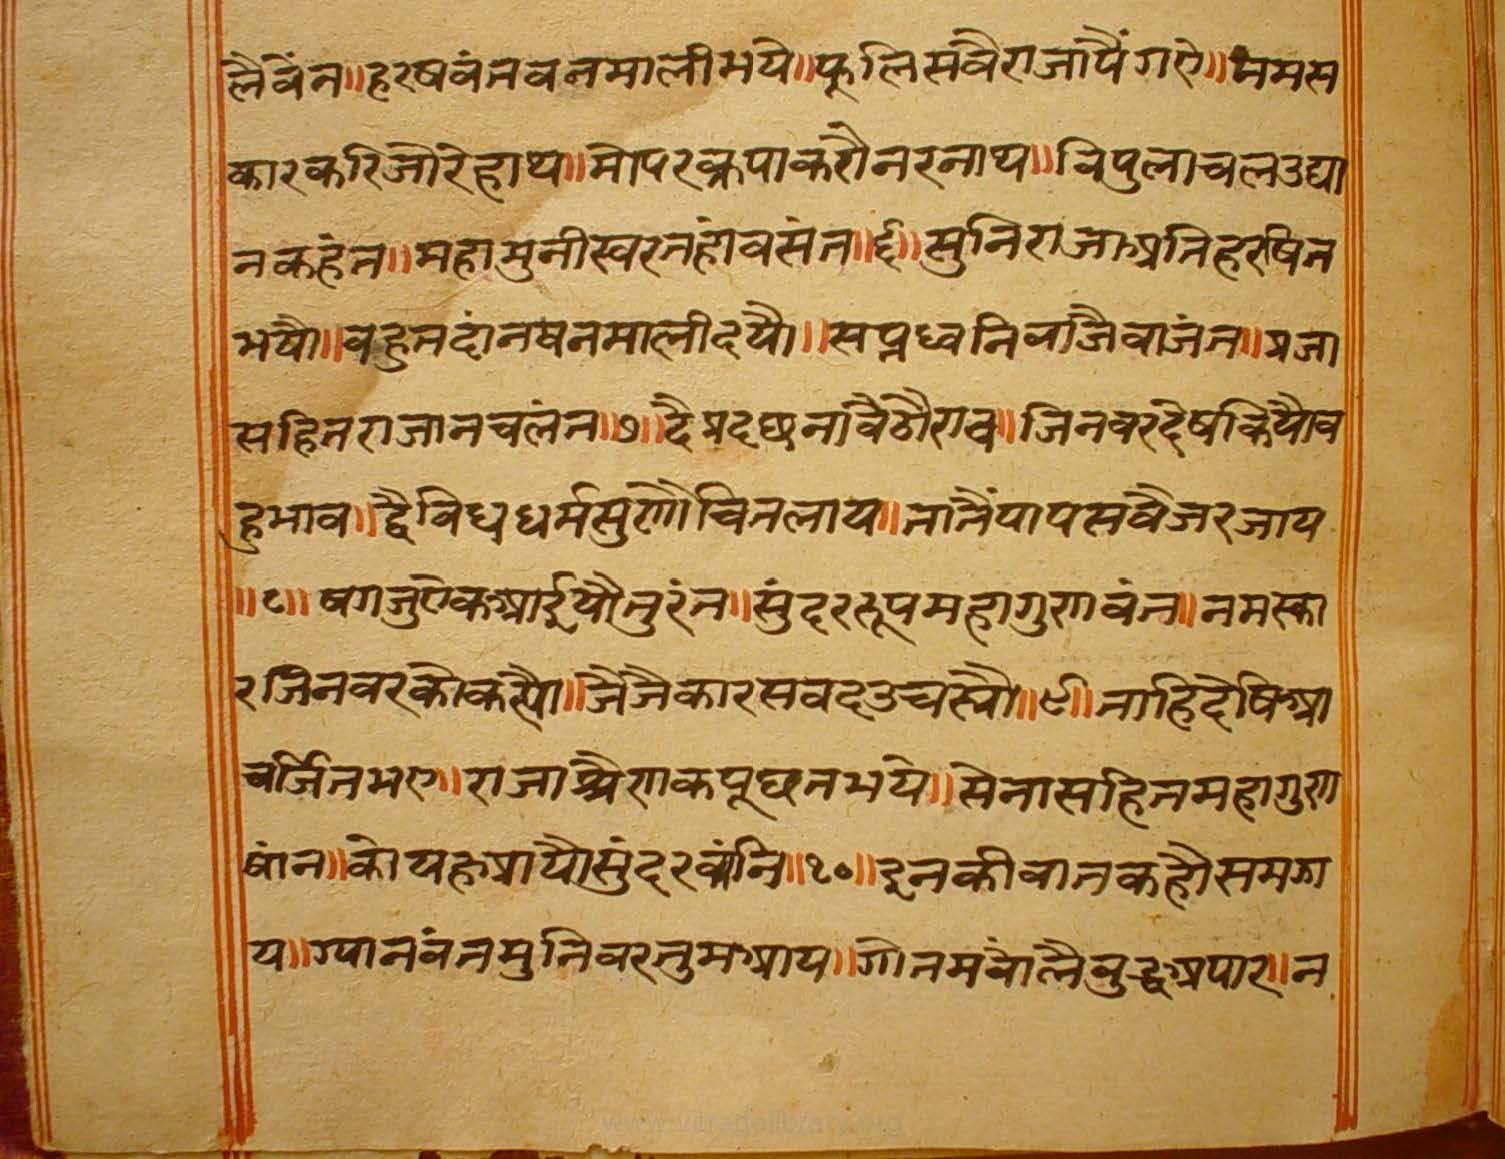 लैवैंन॥हरषवंतवनमालीभये॥फूलिसवैराजापैंगऐ॥नमस
कारकरिजौरेहाथ॥मोपरक्रपाकरौनरनाथ॥विपुलाचलउद्या
नकहंत॥महामुनीस्वरतहांवसंत॥६॥सुनिराजाअतिहरषित
भयौ॥वहुतदांनषनमालीदयौ॥सप्तध्वनिवाजैवाजंत॥प्रजा
सहितराजानचलंत॥७॥दैप्रदछनावैठौराव॥जिनवरदेषकियौव
हुभाव॥द्वैविधधर्मसुणौचितलाय॥तातैंपापसवैजरजाय
॥८॥षगजुऐकआईयौतुरंत॥सुंदररूपमहागुणवंत॥नमस्का
रजिनवरकौकस्यौ॥जैजैकारसवदउचस्यौ॥९॥ताहिदेषिआ
चर्जितभए॥राजाश्रैणकपूछतभये॥सेनासहितमहागुण
षांन॥कोयहआयौसुंदरवांनि॥१०॥इनकीवातकहौसमझा
य॥ग्यानवंतमुनिवरतुमआय॥गौतमवोलैवुद्धअपार॥न
www.vitragelibrary.org